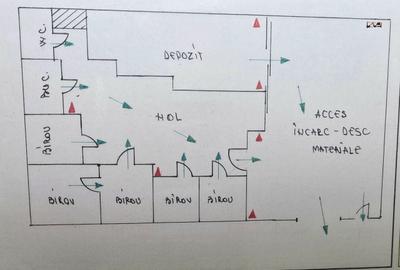 W.C.
DEPOZIT
BUC.
HOL
ACCES
ÎNCARC-DESC
MATERIALE
BÎROU
BÎROU
BÎROU
BÎROU
BÎROU